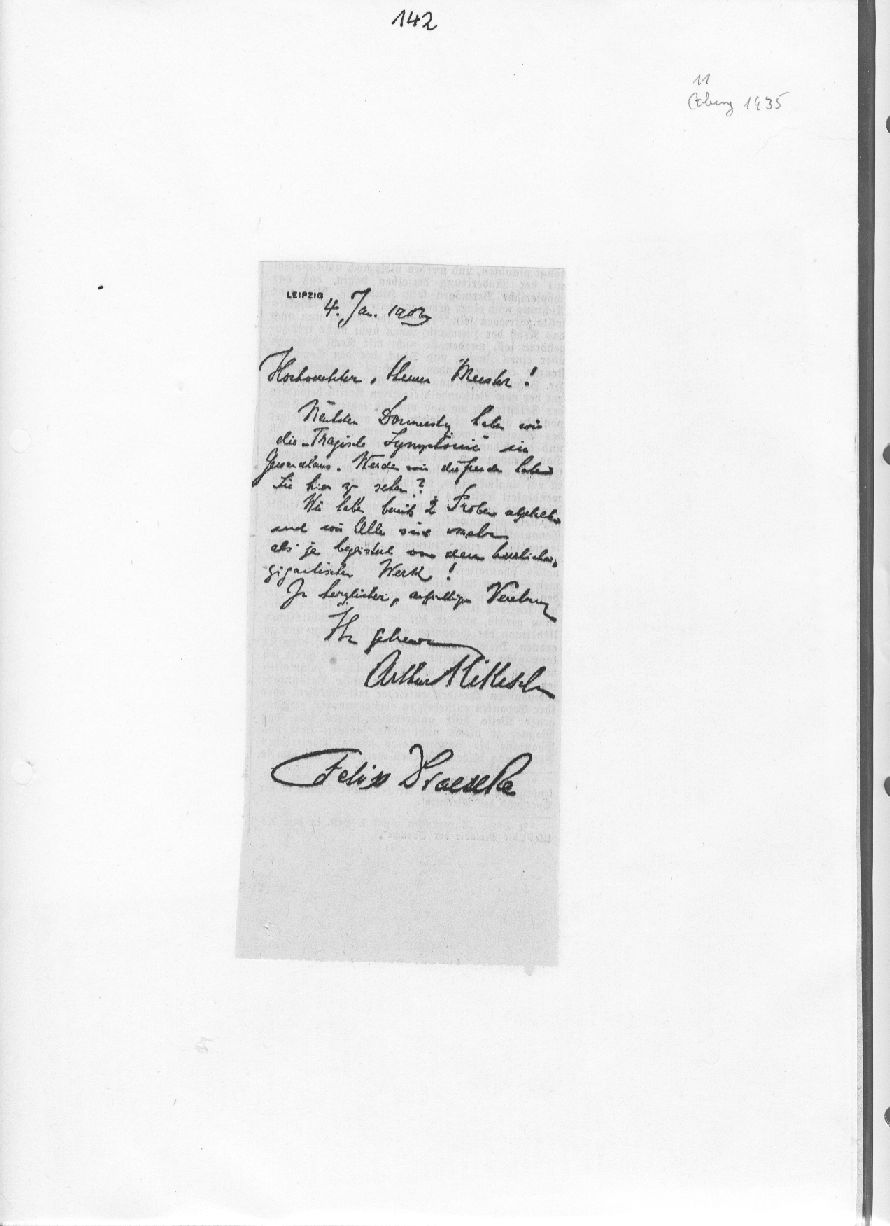 142
11
Coburg 1935
LEIPZIG
4. Jan. 1903
Hochverehrter, theurer Meister!
Nächsten Donnerstag haben wir
die "Tragische Symphonie" im
Gewandhaus. Werden wir die Freude haben
Sie hier zu sehen?
Wir haben bereits 2 Proben abgehalten
und wir Alle sind
als je begeistert von dem herrlichen,
gigantischen Werk!
In herzlicher, aufrichtiger Verehrung
Ihr
Arthur Nikisch
Felix Draeseke